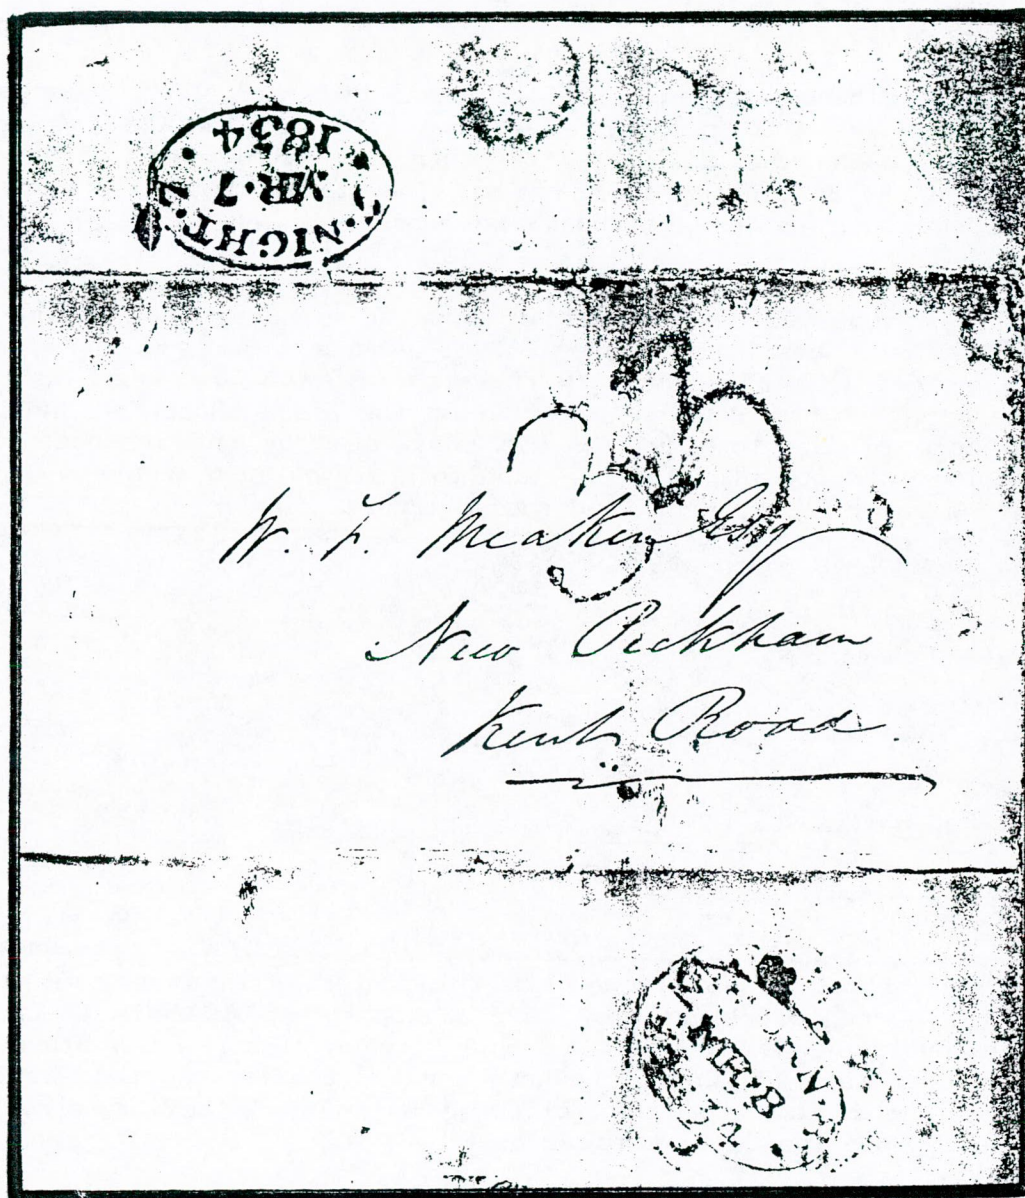 7.NIGHT.7
MR.7
1834
3
W. F. Meaken Esq
New Peckham
Kent Road
MORN
MR.8